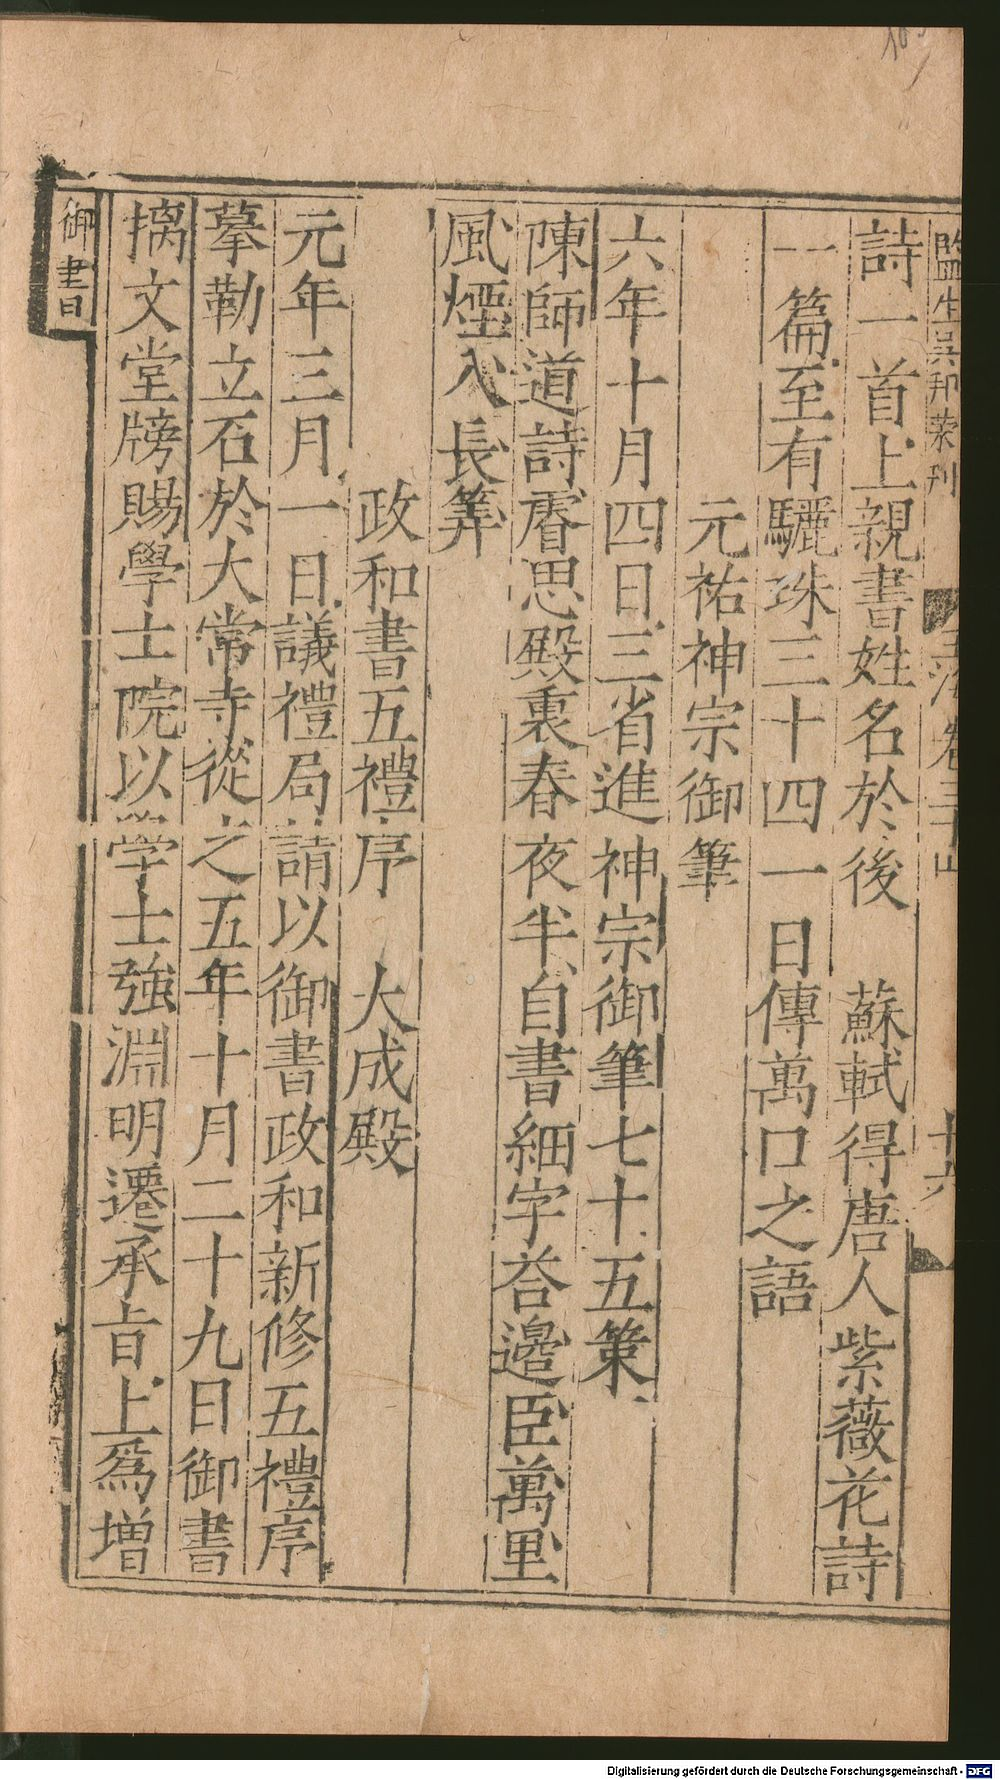 監生吳邦榮刊
玉海卷三十四
十六
詩一首上親書姓名於後　蘇軾得唐人紫薇花詩
一篇至有驪珠三十四一日傳萬口之語
元祐神宗御筆
六年十月四日三省進神宗御筆七十五策
陳師道詩睿思殿裏春夜半自書細字荅邊臣萬里
風煙入長筭
政和書五禮序　大成殿
元年三月一日議禮局請以御書政和新修五禮序
摹勒立石於大常寺從之五年十月二十九日御書
摛文堂牓賜學士院以學士強淵明遷承旨上爲增
御書
Digitalisierung gefördert durch die Deutsche Forschungsgemeinschaft - DFG